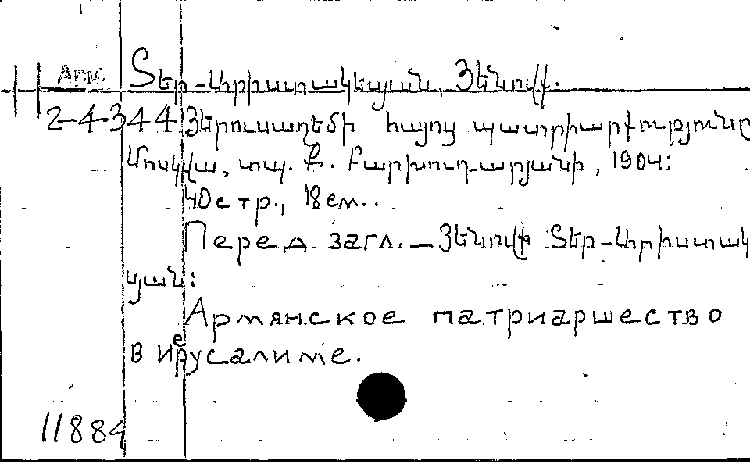 Տեր-Արիստակեսյան, Յենովք.
2-4-344 Յերուսաղեմի հայոց պատրիարքությունը
Մոսկվա, տպ. Ք. Բարխուդարյանի, 1904:
40 стр., 18 см..
Перед загл. — Յենովք Տեր-Արիստակ
յան:
Армянское патриаршество
в иерусалиме.
11884